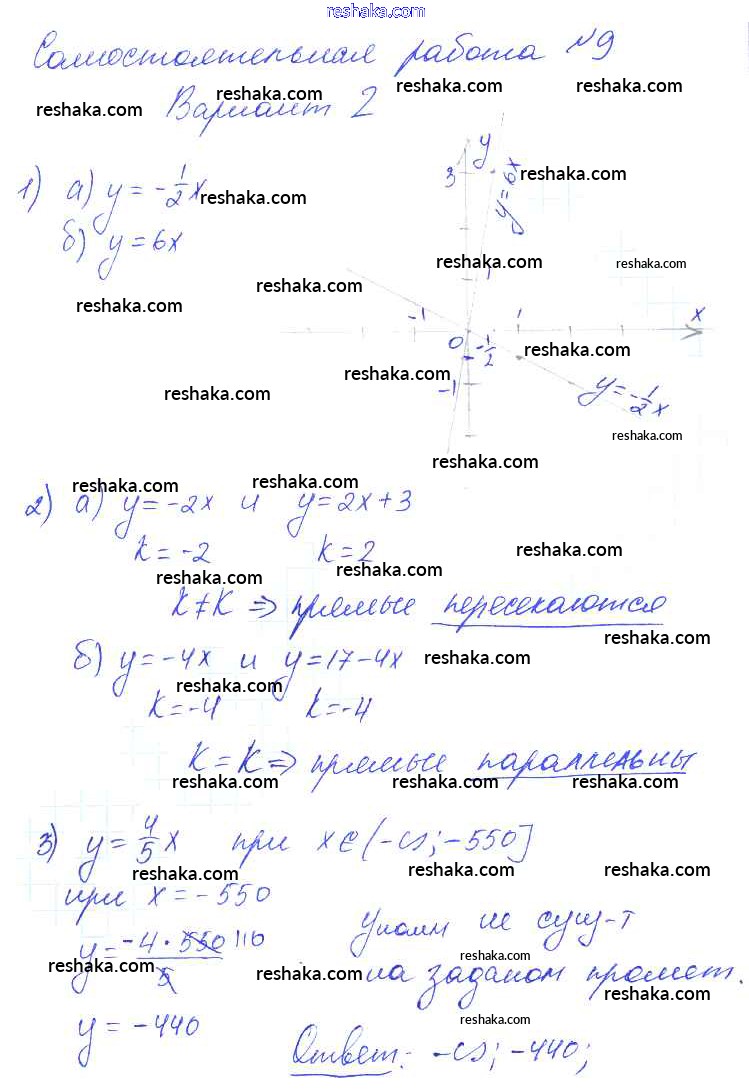 reshaka.com
Самостоятельная работа №9
reshaka.com reshaka.com reshaka.com reshaka.com
Вариант 2
1) а) y = -1/2x
reshaka.com reshaka.com
б) y = 6x
reshaka.com reshaka.com reshaka.com reshaka.com
y
3
y=6x
1
-1 1 x
0 -1/2
reshaka.com reshaka.com
-1
y=-1/2x
reshaka.com reshaka.com
reshaka.com
reshaka.com reshaka.com
2) а) y = -2x и y = 2x + 3
k = -2 k = 2
reshaka.com reshaka.com reshaka.com
k ≠ k ⇒ прямые пересекаются
reshaka.com
б) y = -4x и y = 17 - 4x
reshaka.com reshaka.com
k = -4 k = -4
k = k ⇒ прямые параллельны
reshaka.com reshaka.com reshaka.com
3) y = 4/5x при x ∈ (-∞; -550]
reshaka.com reshaka.com reshaka.com
при x = -550
y = -4 · 550 110 / 5
reshaka.com reshaka.com
y = -440
yнаим не сущ-т
reshaka.com
на заданом промеж.
reshaka.com
reshaka.com
Ответ: -∞; -440;